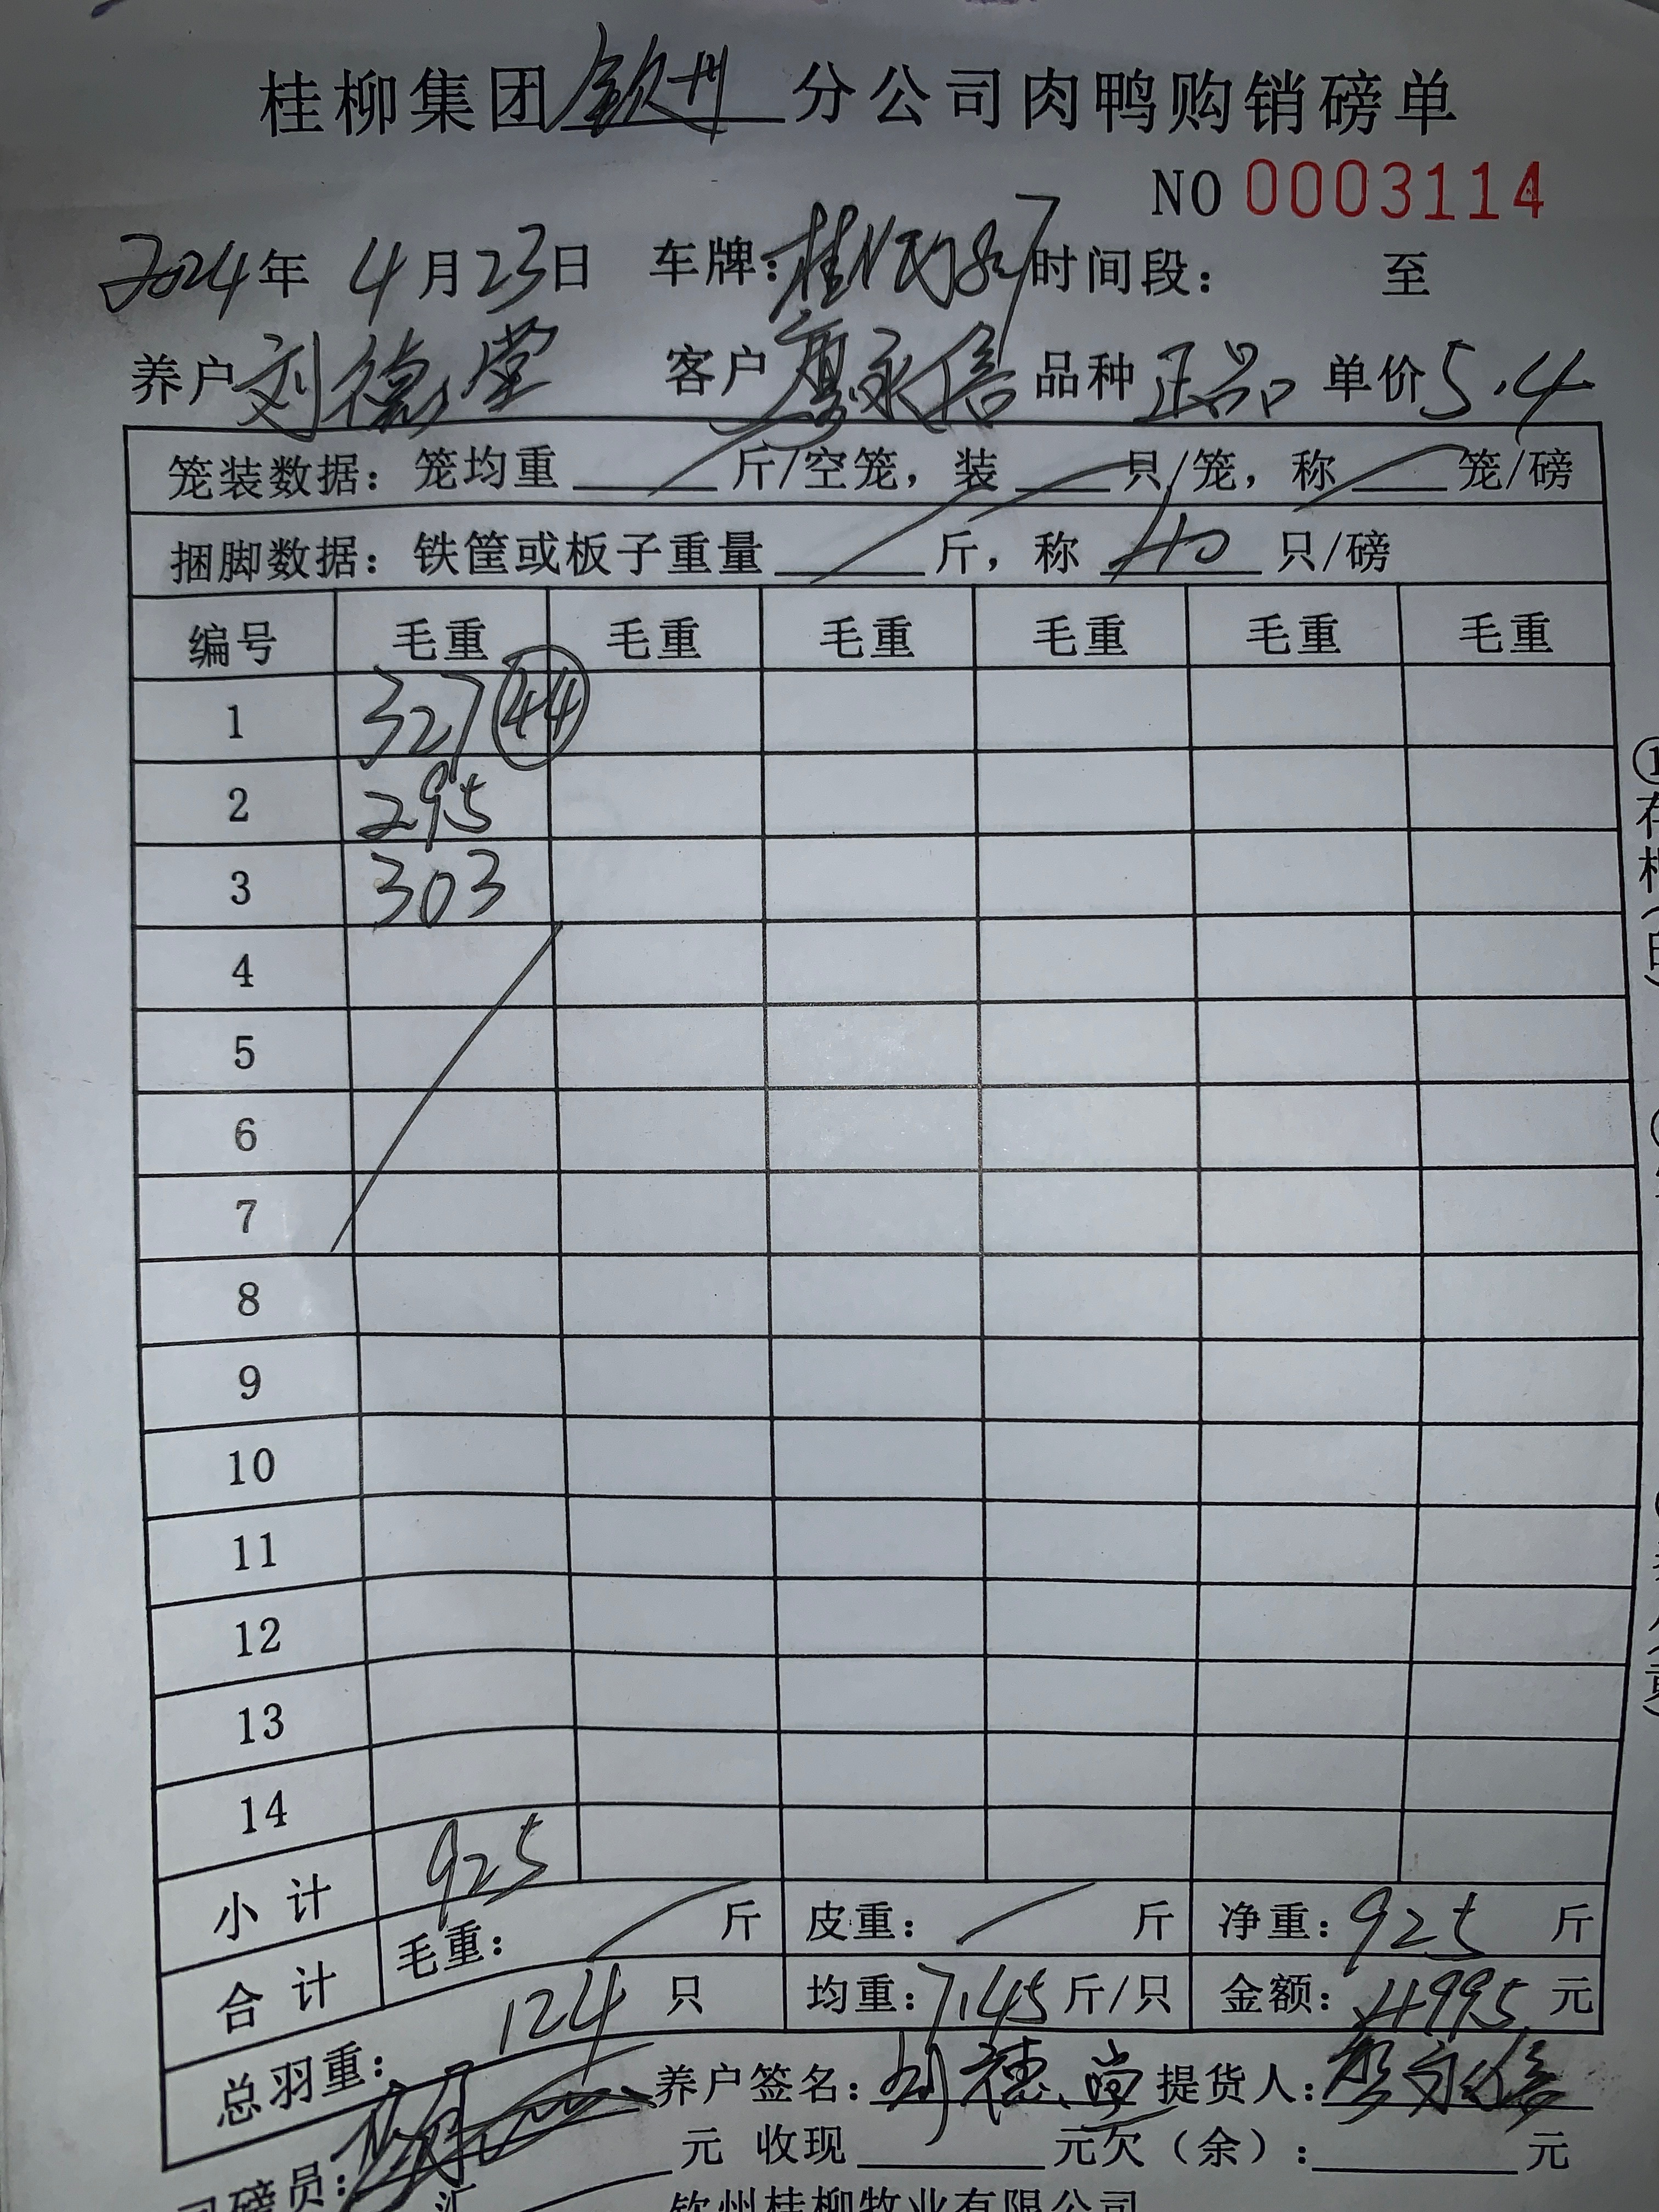 桂柳集团钦州分公司肉鸭购销磅单
NO 0003114
2024年 4月23日 车牌:桂 时间段: 至
养户刘德堂 客户廖永信 品种正品 单价5.4
笼装数据: 笼均重 斤/空笼, 装 只/笼, 称 笼/磅
捆脚数据: 铁筐或板子重量 斤, 称 40 只/磅
编号 毛重 毛重 毛重 毛重 毛重 毛重
1 327 44
2 295
3 303
4
5
6
7
8
9
10
11
12
13
14
小计 925
合计 毛重: 斤 皮重: 斤 净重:925 斤
总羽重: 124 只 均重:7.45斤/只 金额:4995元
司磅员: 养户签名:刘德堂 提货人:廖永信
汇 元 收现 元欠(余): 元
钦州桂柳牧业有限公司
①存根(白)